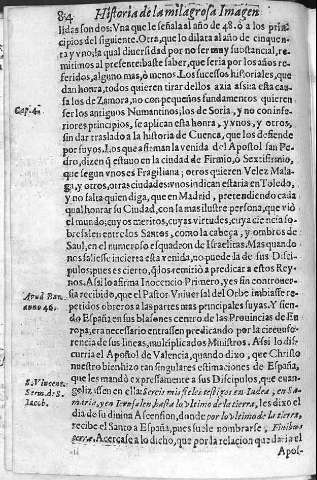 84 Historia de la milagrosa Imagen
lidas son dos: Vna que le señala al año de 48. ò a los prin-
cipios del siguiente. Otra, que lo dilata al año de cinquen-
ta y vno: la qual diversidad por no ser muy substancial, re-
mitimos al presente: baste saber, que seria por los años re-
feridos, alguno mas, ò menos. Los sucessos historiales, que
dan honra, todos quieren tirar dellos azia assi: a esta cau-
sa los de Zamora, no con pequeños fundamentos quieren
Cap. 4.
ser los antiguos Numantinos, los de Soria, y no con infe-
riores principios, se aplican esta honra, y vnos, y otros,
sin dar traslado a la historia de Cuenca, que los defiende
por suyos. Los que afirman la venida del Apostol san Pe-
dro, dizen q̃ estuuo en la ciudad de Firmio, ò Sextifirmio,
que segun vnos es Fragiliana; otros quieren Velez Mala-
ga, y otros, otras ciudades: vnos indican estaria en Toledo,
y no falta quien diga, que en Madrid, pretendiendo cada
qual honrar su Ciudad, con la mas ilustre persona, que viò
el mundo; cuyos meritos, cuyas virtudes, cuya ciencia so-
bresalen entre los Santos, como la cabeça, y ombros de
Saul, en el numeroso esquadron de Israelitas. Mas quando
no saliesse incierta esta venida, no puede la de sus Disci-
pulos; pues es cierto, q̃ los remitiò a predicar a estos Rey-
nos. Assi lo afirma Inocencio Primero, yes sin controuer-
Apud Bar.
anno 46.
sia recibido, que el Pastor Vniuersal del Orbe imbiasse re-
petidos obreros a las partes mas principales suyas. Y sien-
do España; en sus blasones centro de las Prouincias de Eu-
ropa, era necessario entrassen predicando por la circunfe-
rencia de sus lineas, multiplicados Ministros. Assi lo dis-
curria el Apostol de Valencia, quando dixo, que Christo
nuestro bien hizo tan singulares estimaciones de España,
que les mandò expressamente a sus Discipulos, que euan-
S. Vincent.
Serm. de S.
Iacob.
gelizassen en ella: Sereis mis fieles testigos en Iudea, en Sa-
maria, y en Ierusalen, hasta lo vltimo de la tierra, les dixo el
dia de su diuina Ascension, donde por lo vltimo de la tierra,
recibe el Santo a España, pues suele nombrarse, Finibus
terræ. Acercase a lo dicho, que por la relacion que daria el
Apos-